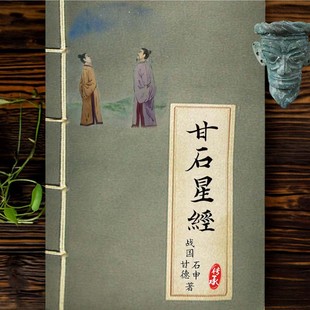 甘石星經
战国
石申
甘德
著
传承